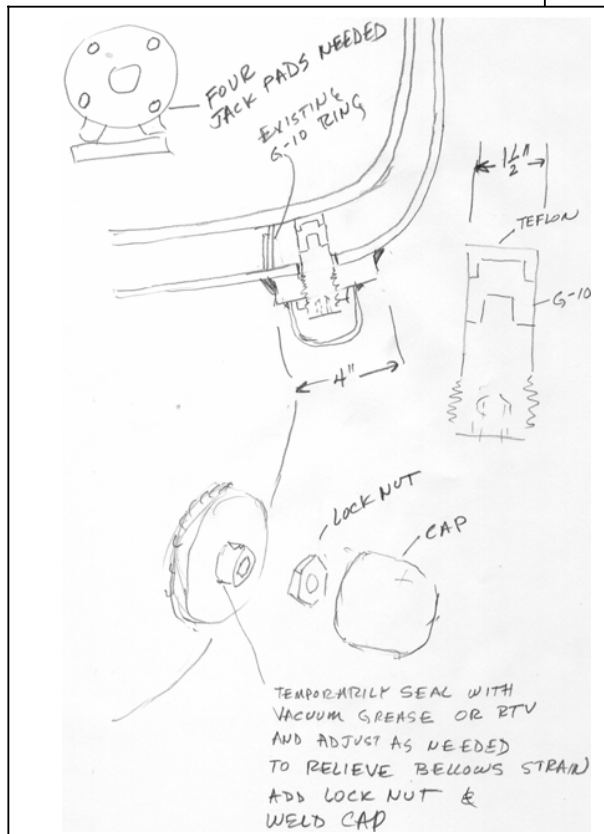 FOUR
JACK PADS NEEDED
EXISTING
G-10 RING
1 1/2"
TEFLON
G-10
4"
LOCK NUT
CAP
TEMPORARILY SEAL WITH
VACUUM GREASE OR RTV
AND ADJUST AS NEEDED
TO RELIEVE BELLOWS STRAIN
ADD LOCK NUT &
WELD CAP